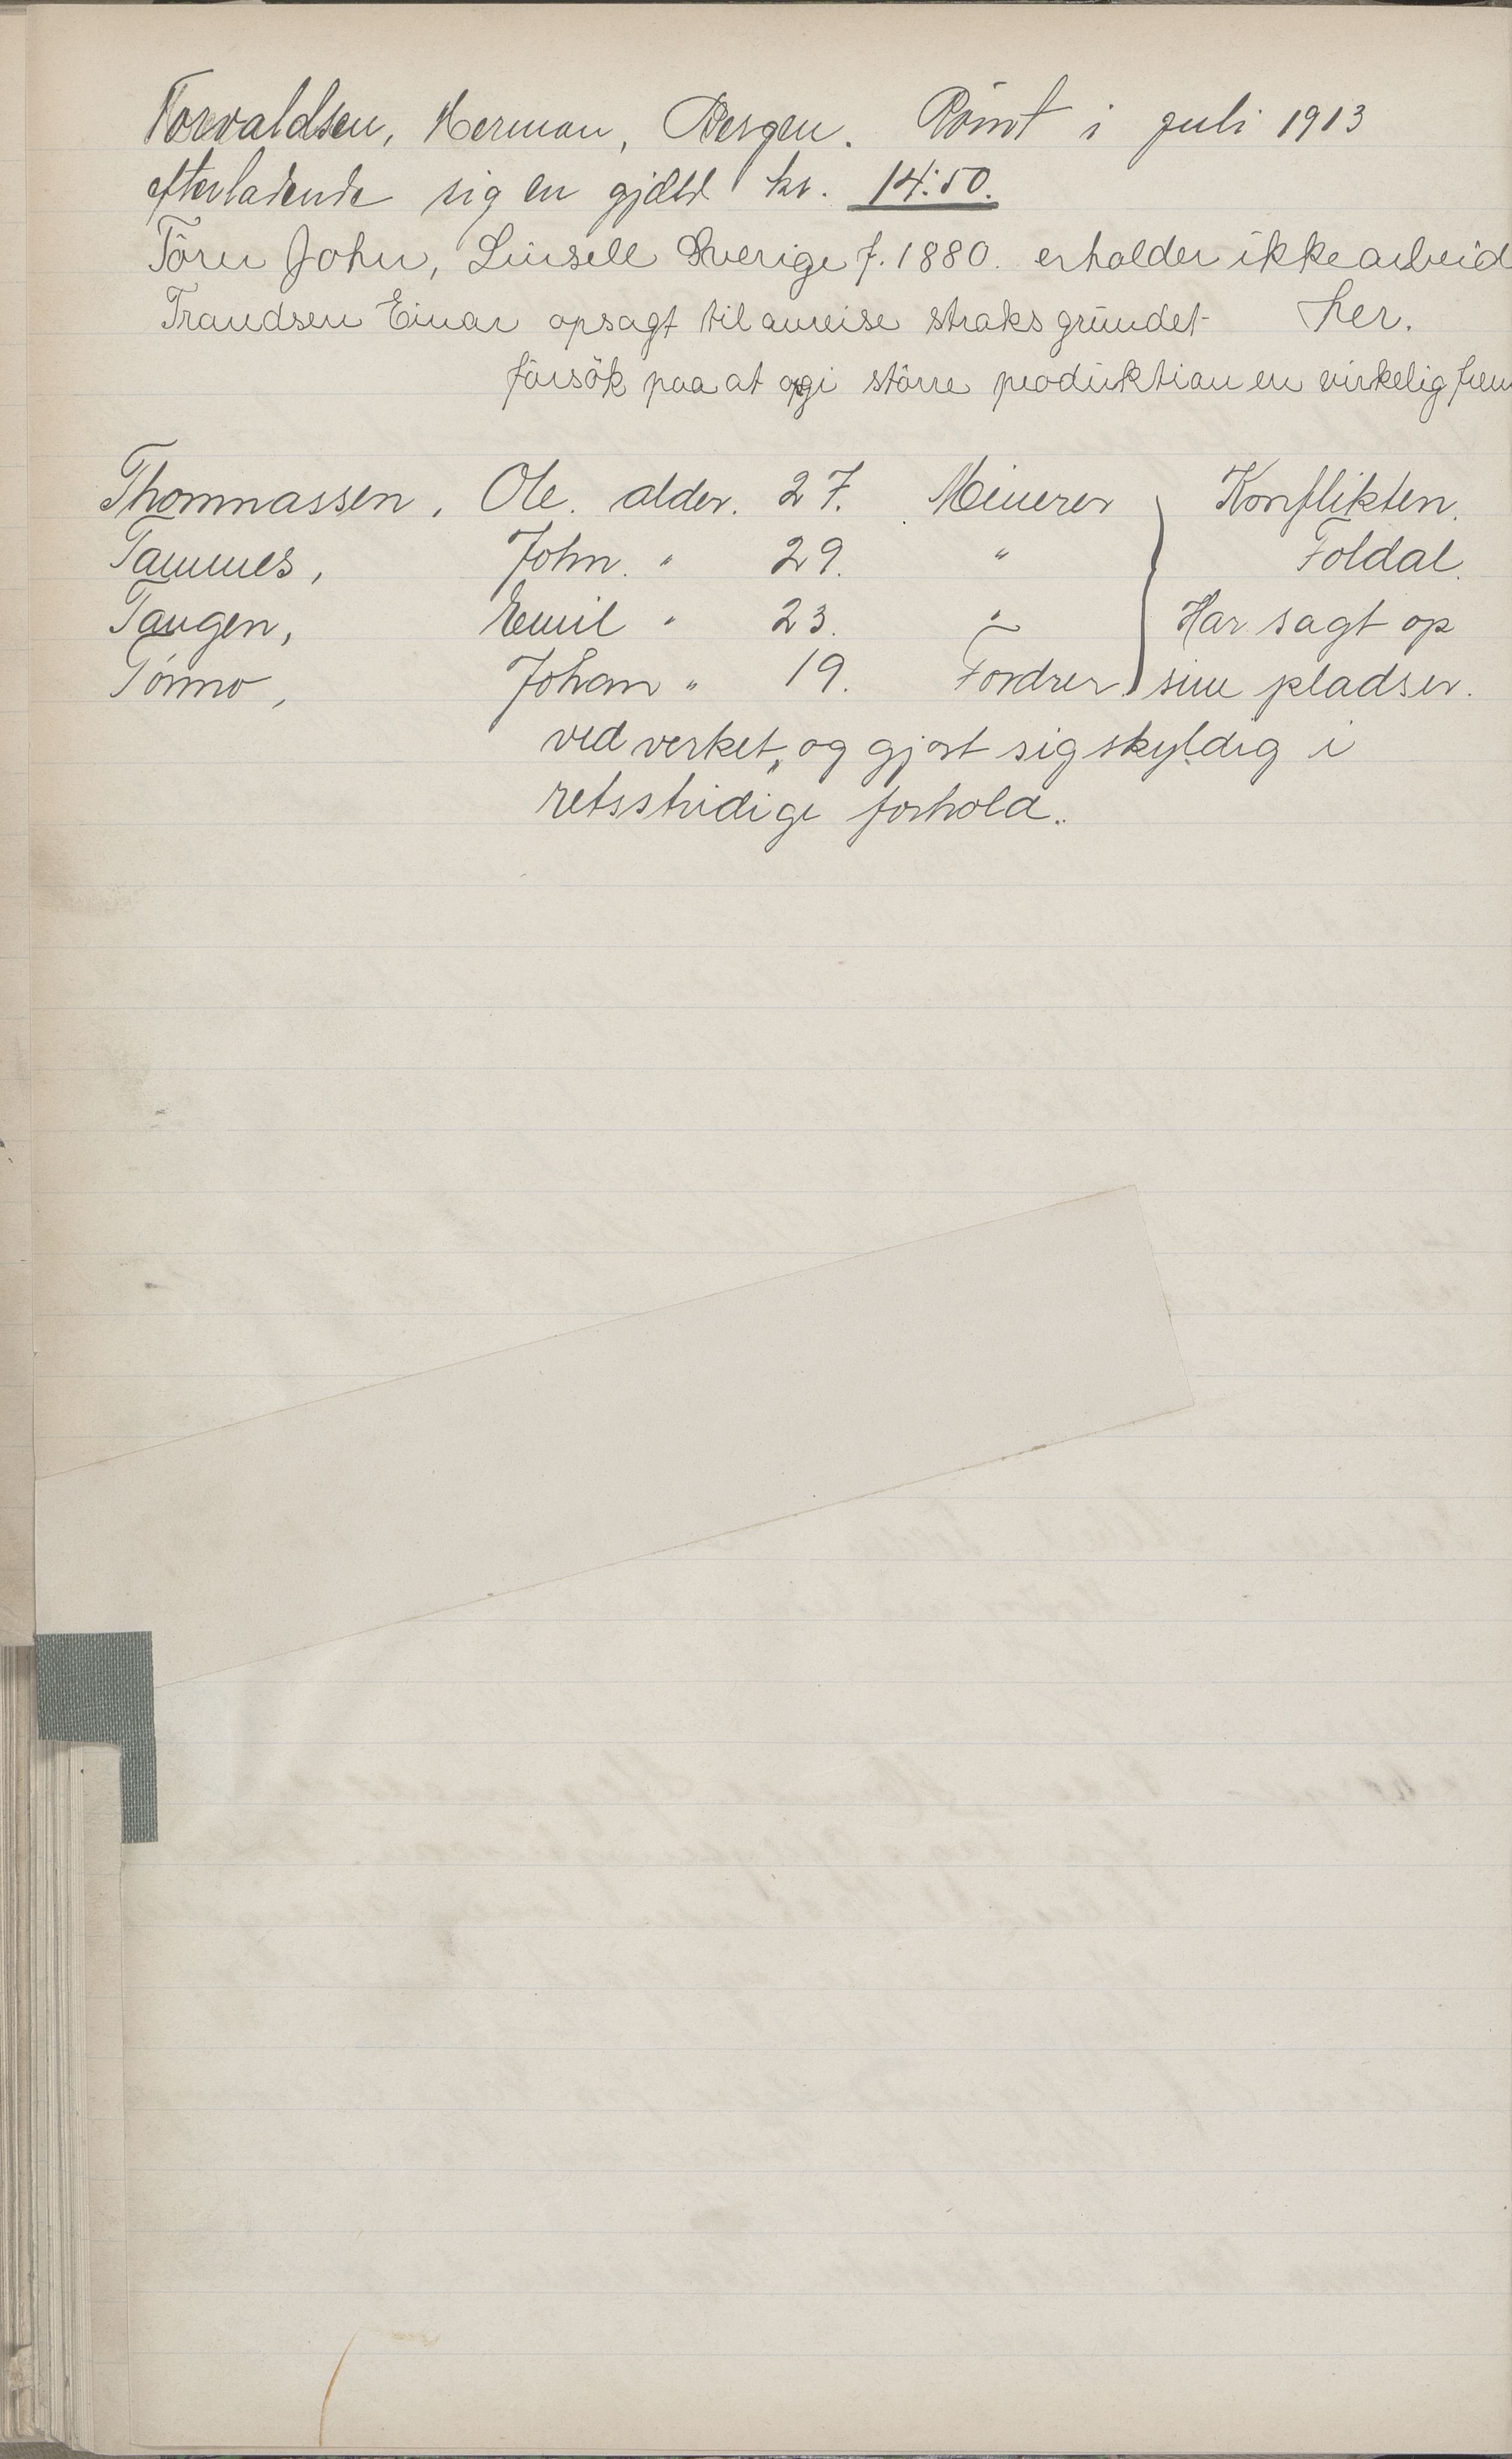 Torvaldsen, Herman, Bergen. Römt i juli 1913
efterladende sig en gjæld kr. 14.50.
Törn John, Linsell Sverige f. 1880. erholder ikke arbeid
Trandsen Einar opsagt til avreise straks grundet her.
forsök paa at opgi större produktion en virkelig frem
Thommassen, Ole. alder. 27. Meinerer Konflikten.
Tammes, John. " 29. " Foldal.
Tangen, Emil " 23. " Har sagt op
Tömo, Johan " 19. Fordrer. sine pladser.
ved verket, og gjort sig skyldig i
retsstridige forhold.